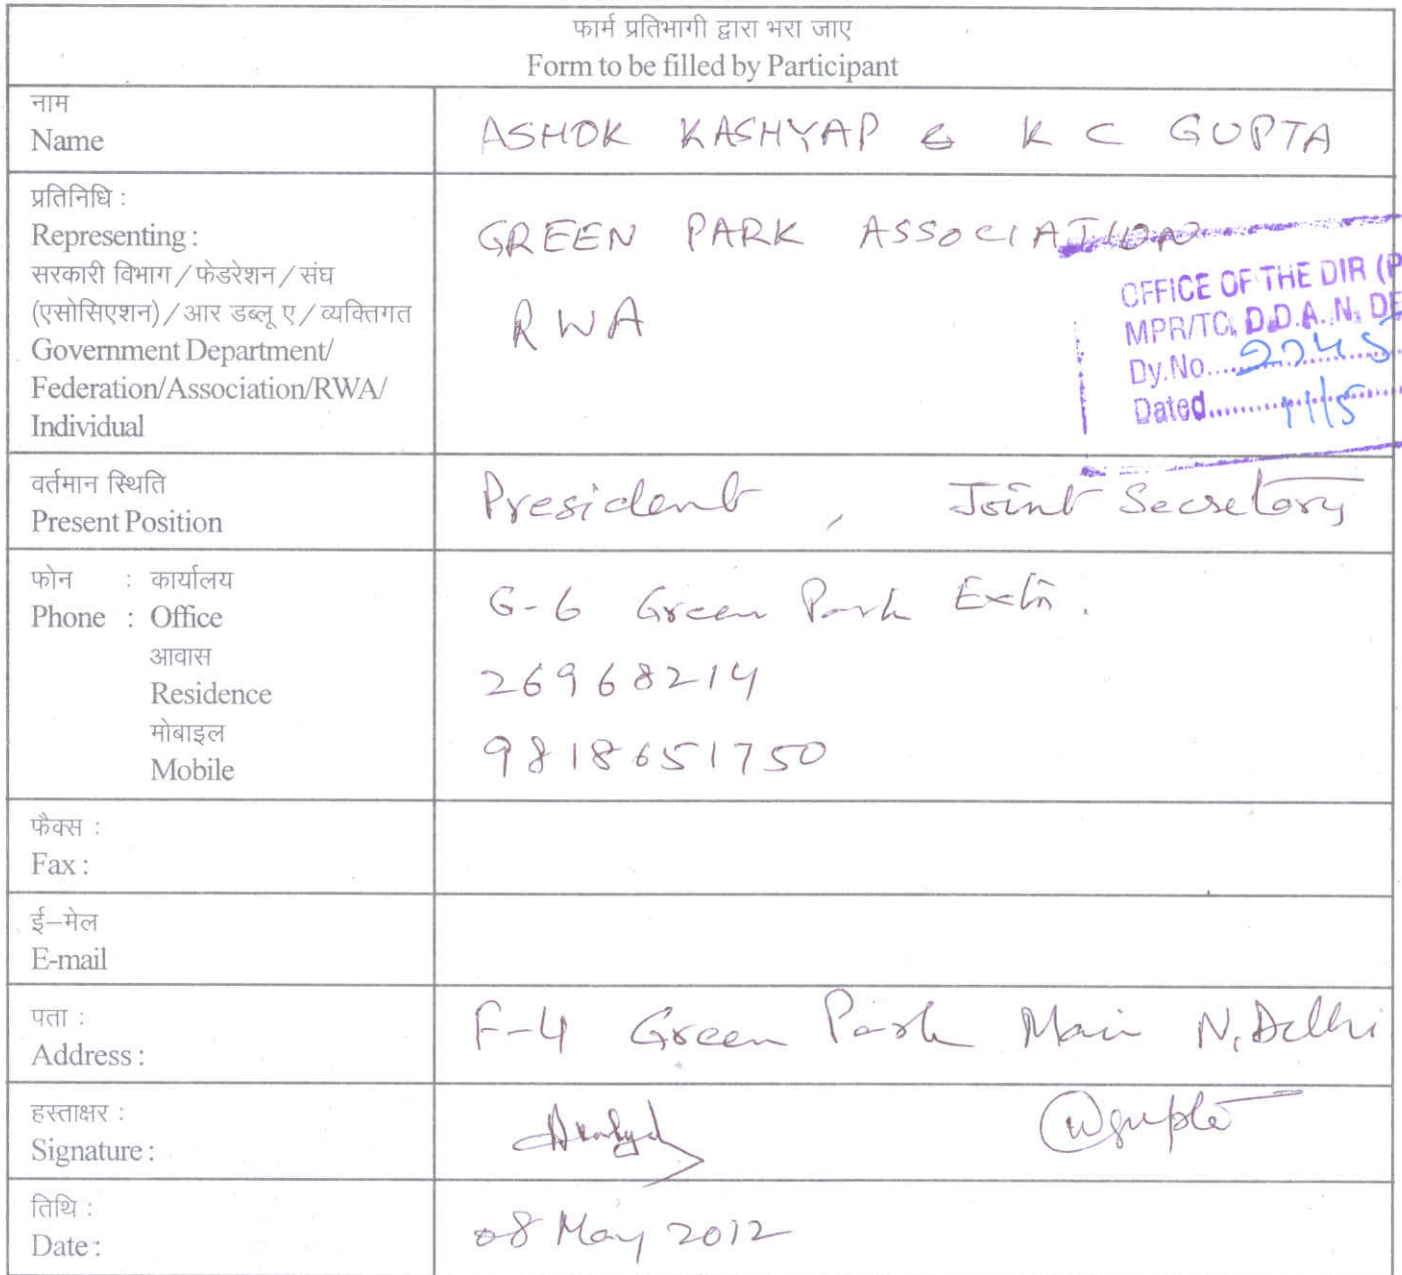 फार्म प्रतिभागी द्वारा भरा जाए
Form to be filled by Participant
नाम
Name
ASHOK KASHYAP & K C GUPTA
प्रतिनिधि :
Representing :
सरकारी विभाग / फेडरेशन / संघ
(एसोसिएशन) / आर डब्लू ए / व्यक्तिगत
Government Department/
Federation/Association/RWA/
Individual
GREEN PARK ASSOCIATION
RWA
OFFICE OF THE DIR (P
MPR/TC, D.D.A. N. DE
Dy.No.
Dated 11/5
वर्तमान स्थिति
Present Position
President , Joint Secretary
फोन : कार्यालय
Phone : Office
आवास
Residence
मोबाइल
Mobile
G-6 Green Park Extn.
26968214
9818651750
फैक्स :
Fax :
ई–मेल
E-mail
पता :
Address :
F-4 Green Park Main N. Delhi
हस्ताक्षर :
Signature :
तिथि :
Date :
08 May 2012